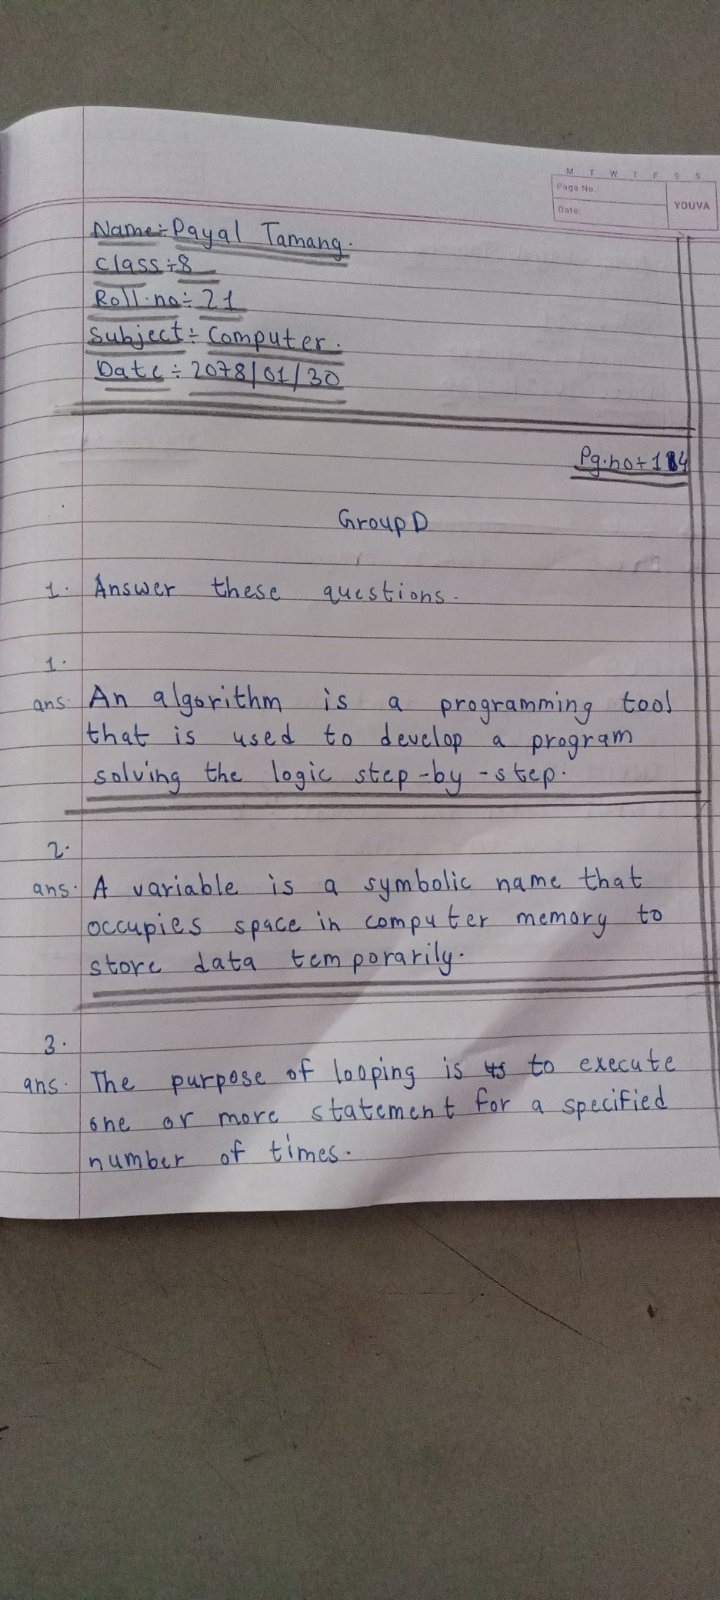 M T W T F S S
Page No.
YOUVA
Date:
Name:- Payal Tamang.
Class:- 8
Roll.no:- 21
Subject:- Computer.
Date:- 2078/01/30
Pg.no:- 184
Group D
1. Answer these questions.
1.
ans. An algorithm is a programming tool
that is used to develop a program
solving the logic step-by-step.
2.
ans. A variable is a symbolic name that
occupies space in computer memory to
store data temporarily.
3.
ans. The purpose of looping is to execute
one or more statement for a specified
number of times.